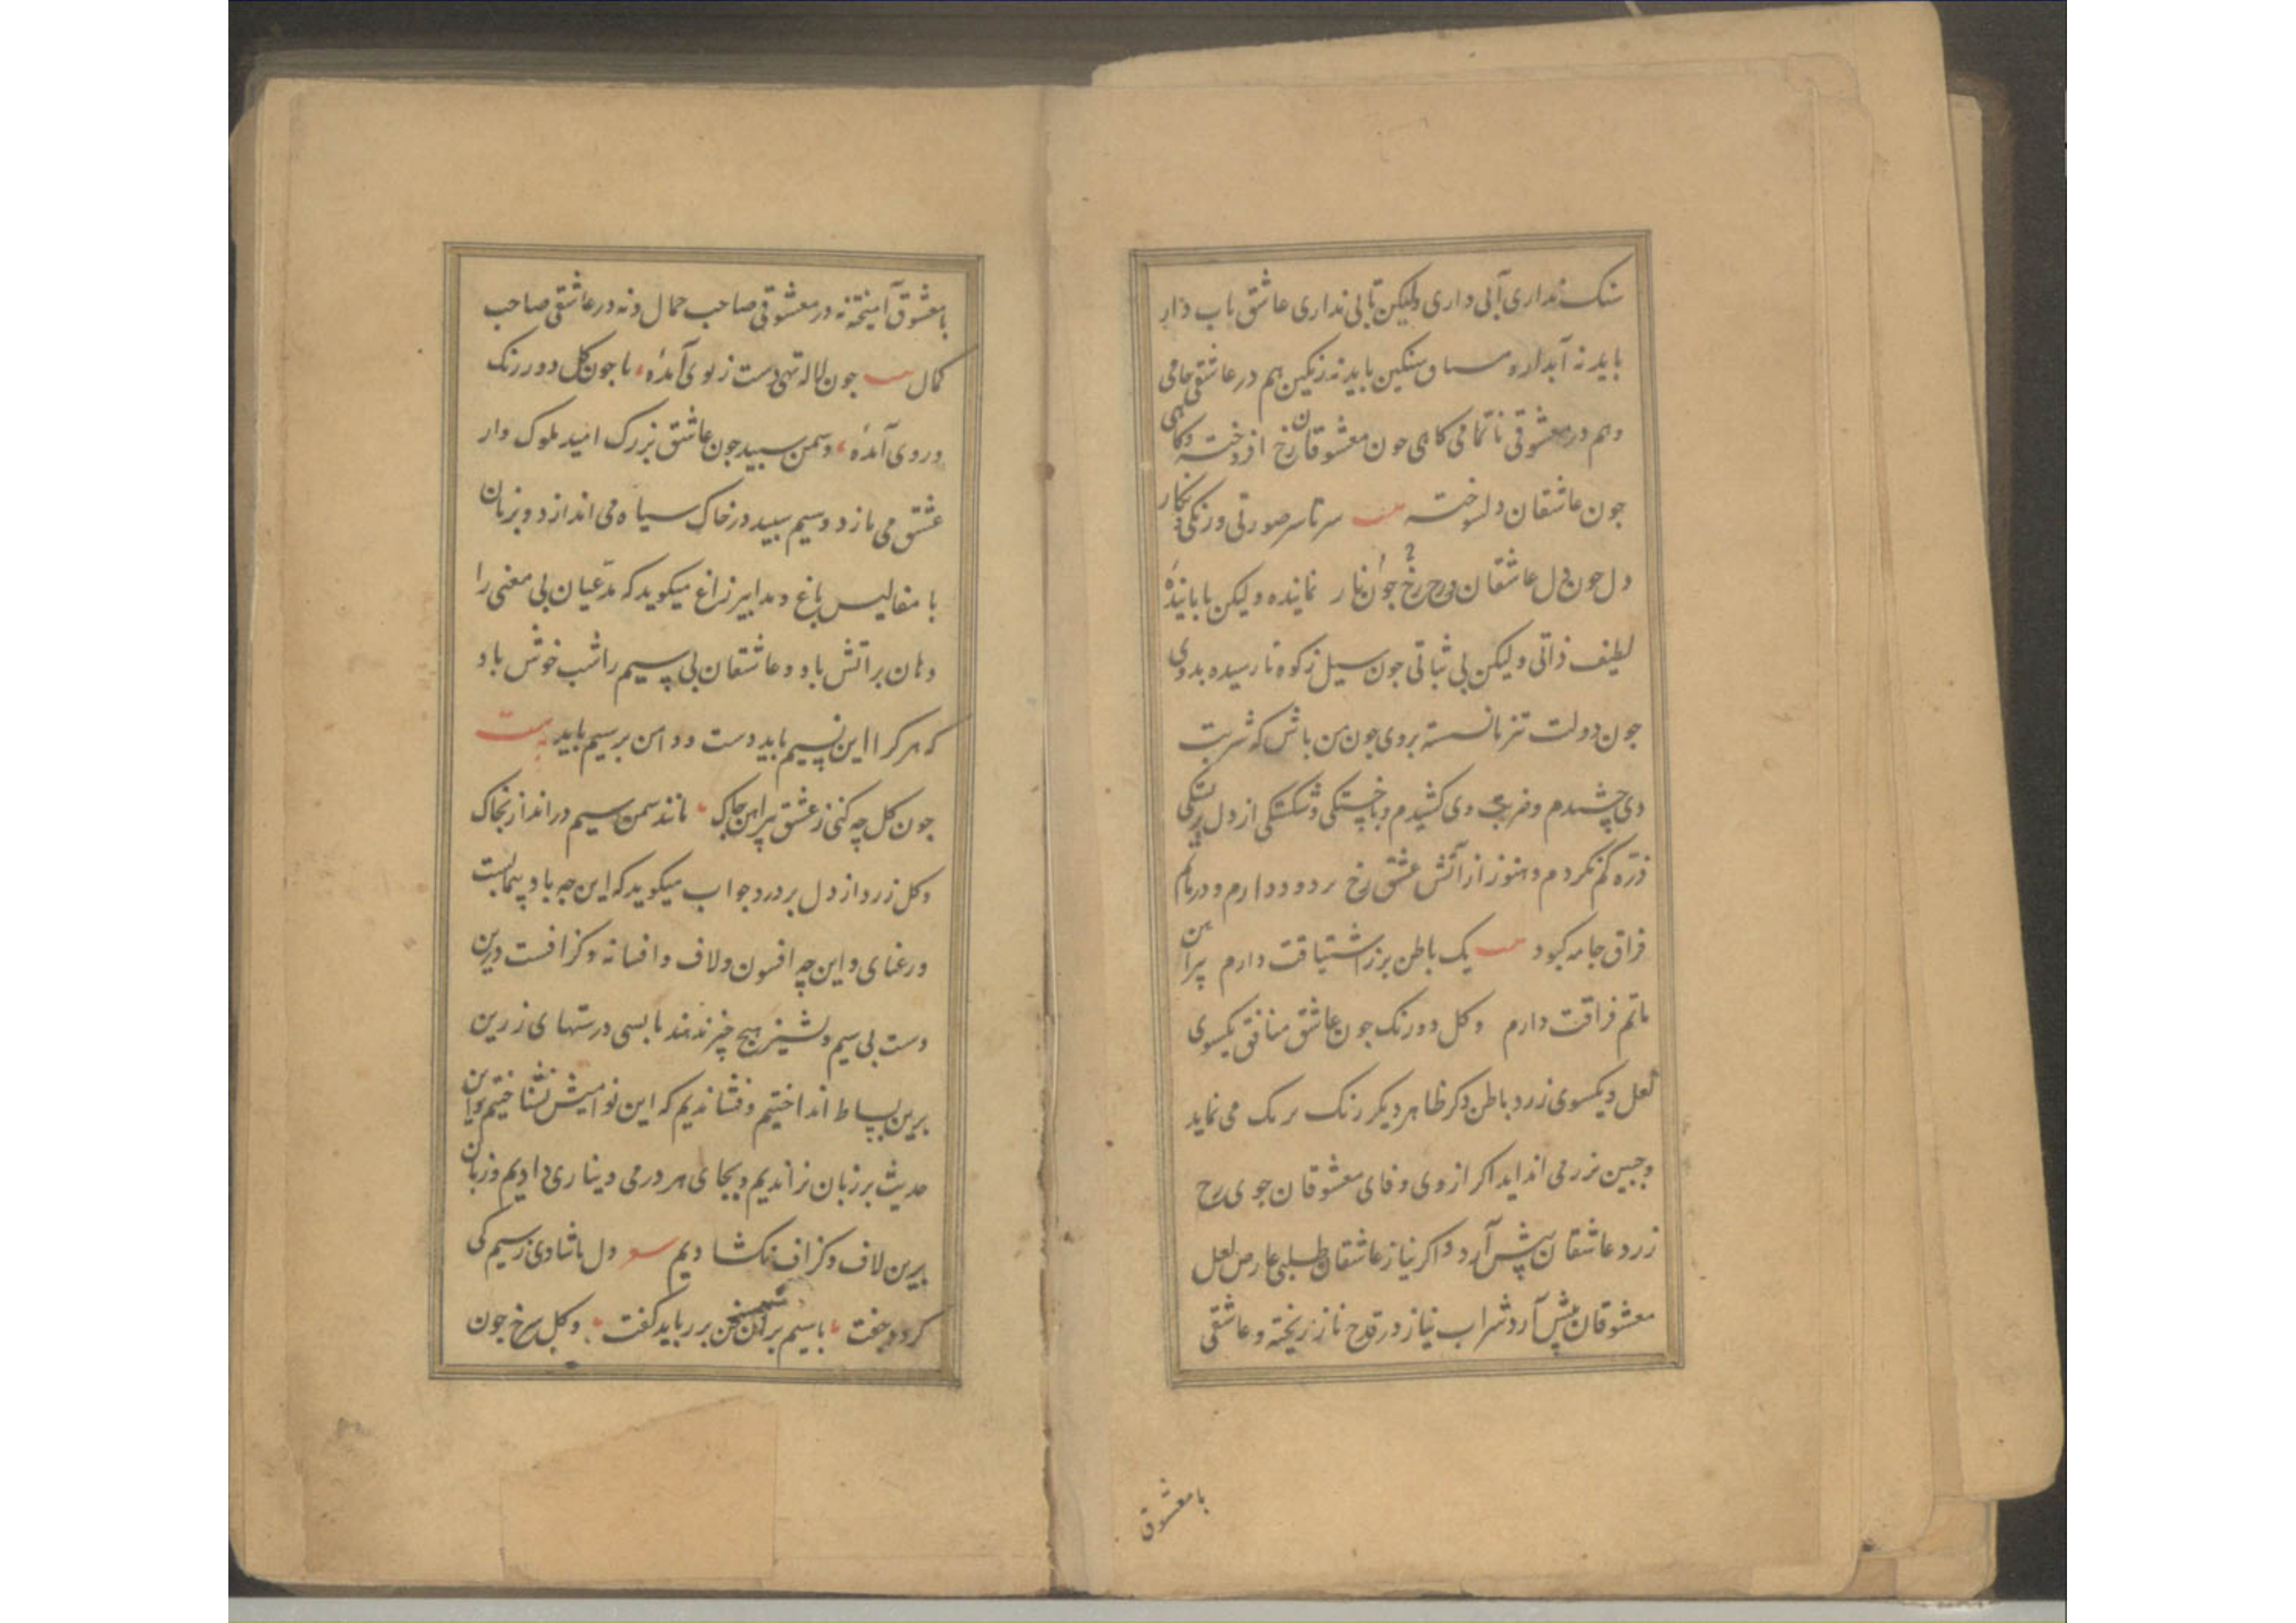 سنک نداری آبی داری ولیکن تابی نداری عاشق تاب دار
باید نه آبدار و سنکین باید نه رنکین هم در عاشقی خامی
وهم در معشوقی ناتمامی کاهی چون معشوقان رخ افروخته وکاهی
چون عاشقان دلسوخته سرتاسر صورتی ورنکی ونکار
دل چون دل عاشقان رخ چون نار نماینده ولیکن نابایندهٔ
لطیف ذاتی ولیکن بی ثباتی چون سیل زکوه نارسیده بدوی
جون دولت تیز نانسسته بروی جون من باش که شربت
دی چشیدم وضربت وی کشیدم وباخستکی وشکستکی از دل بستکی
ذرّه کم نکردم وهنوز از آتش عشق رخ بردود دارم ودر ماتم
فراق جامه کبود یک باطن پرز اشتیاقت دارم پیراهن
ماتم فراقت دارم وکل دورنک جون عاشق منافق یکسوی
لعل ویکسوی زرد باطن دکر ظاهر دیکر رنک برنک می نماید
وجبین بزر می انداید اکر از وی وفای معشوقان جوی رخ
زرد عاشقان پیش آرد واکر نیاز عاشقان طلبی عارض لعل
معشوقان پیش آرد شراب نیاز در قدح ناز ریخته وعاشقی
با معشوق
با معشوق آمیخته نه در معشوقی صاحب جمال ونه در عاشقی صاحب
کمال جون لاله تهی دست زبوی آمدهٔ، یا جون کل دو رنک
ودروی آمدهٔ، وسمن سپید جون عاشق بزرک امید ملوک وار
عشق می بازد وسیم سپید در خاک سیاه می اندازد وبزبان
با مفالیس باغ ومدابیر زاغ میکوید که مدّعیان بی معنی را
دهان بر آتش باد وعاشقان بی سیم را شب خوش باد
که هر کرا این نسیم باید دست ودامن بر سیم باید بیت
جون کل چه کنی زعشق پیراهن چاک، مانند سمن سیم در انداز بخاک
وکل زرد از دل بر درد جواب میکوید که این چه باد پیماییست
ورعنای واین چه افسون ولاف وافسانه وکزافست درین
دست بی سیم ونشیز هیچ چیز ندهند ما بسی درستهای زرین
برین بساط انداختیم وفشاندیم که این نوا میش نشناختیم واین
حدیث بر زبان نراندیم وبجای هر درمی دیناری دادیم وزبان
برین لاف وکزاف نکشادیم دل با شادی زسیم کی
کردد جفت، با سیم بران سخن بزر باید کفت، وکل سرخ جون